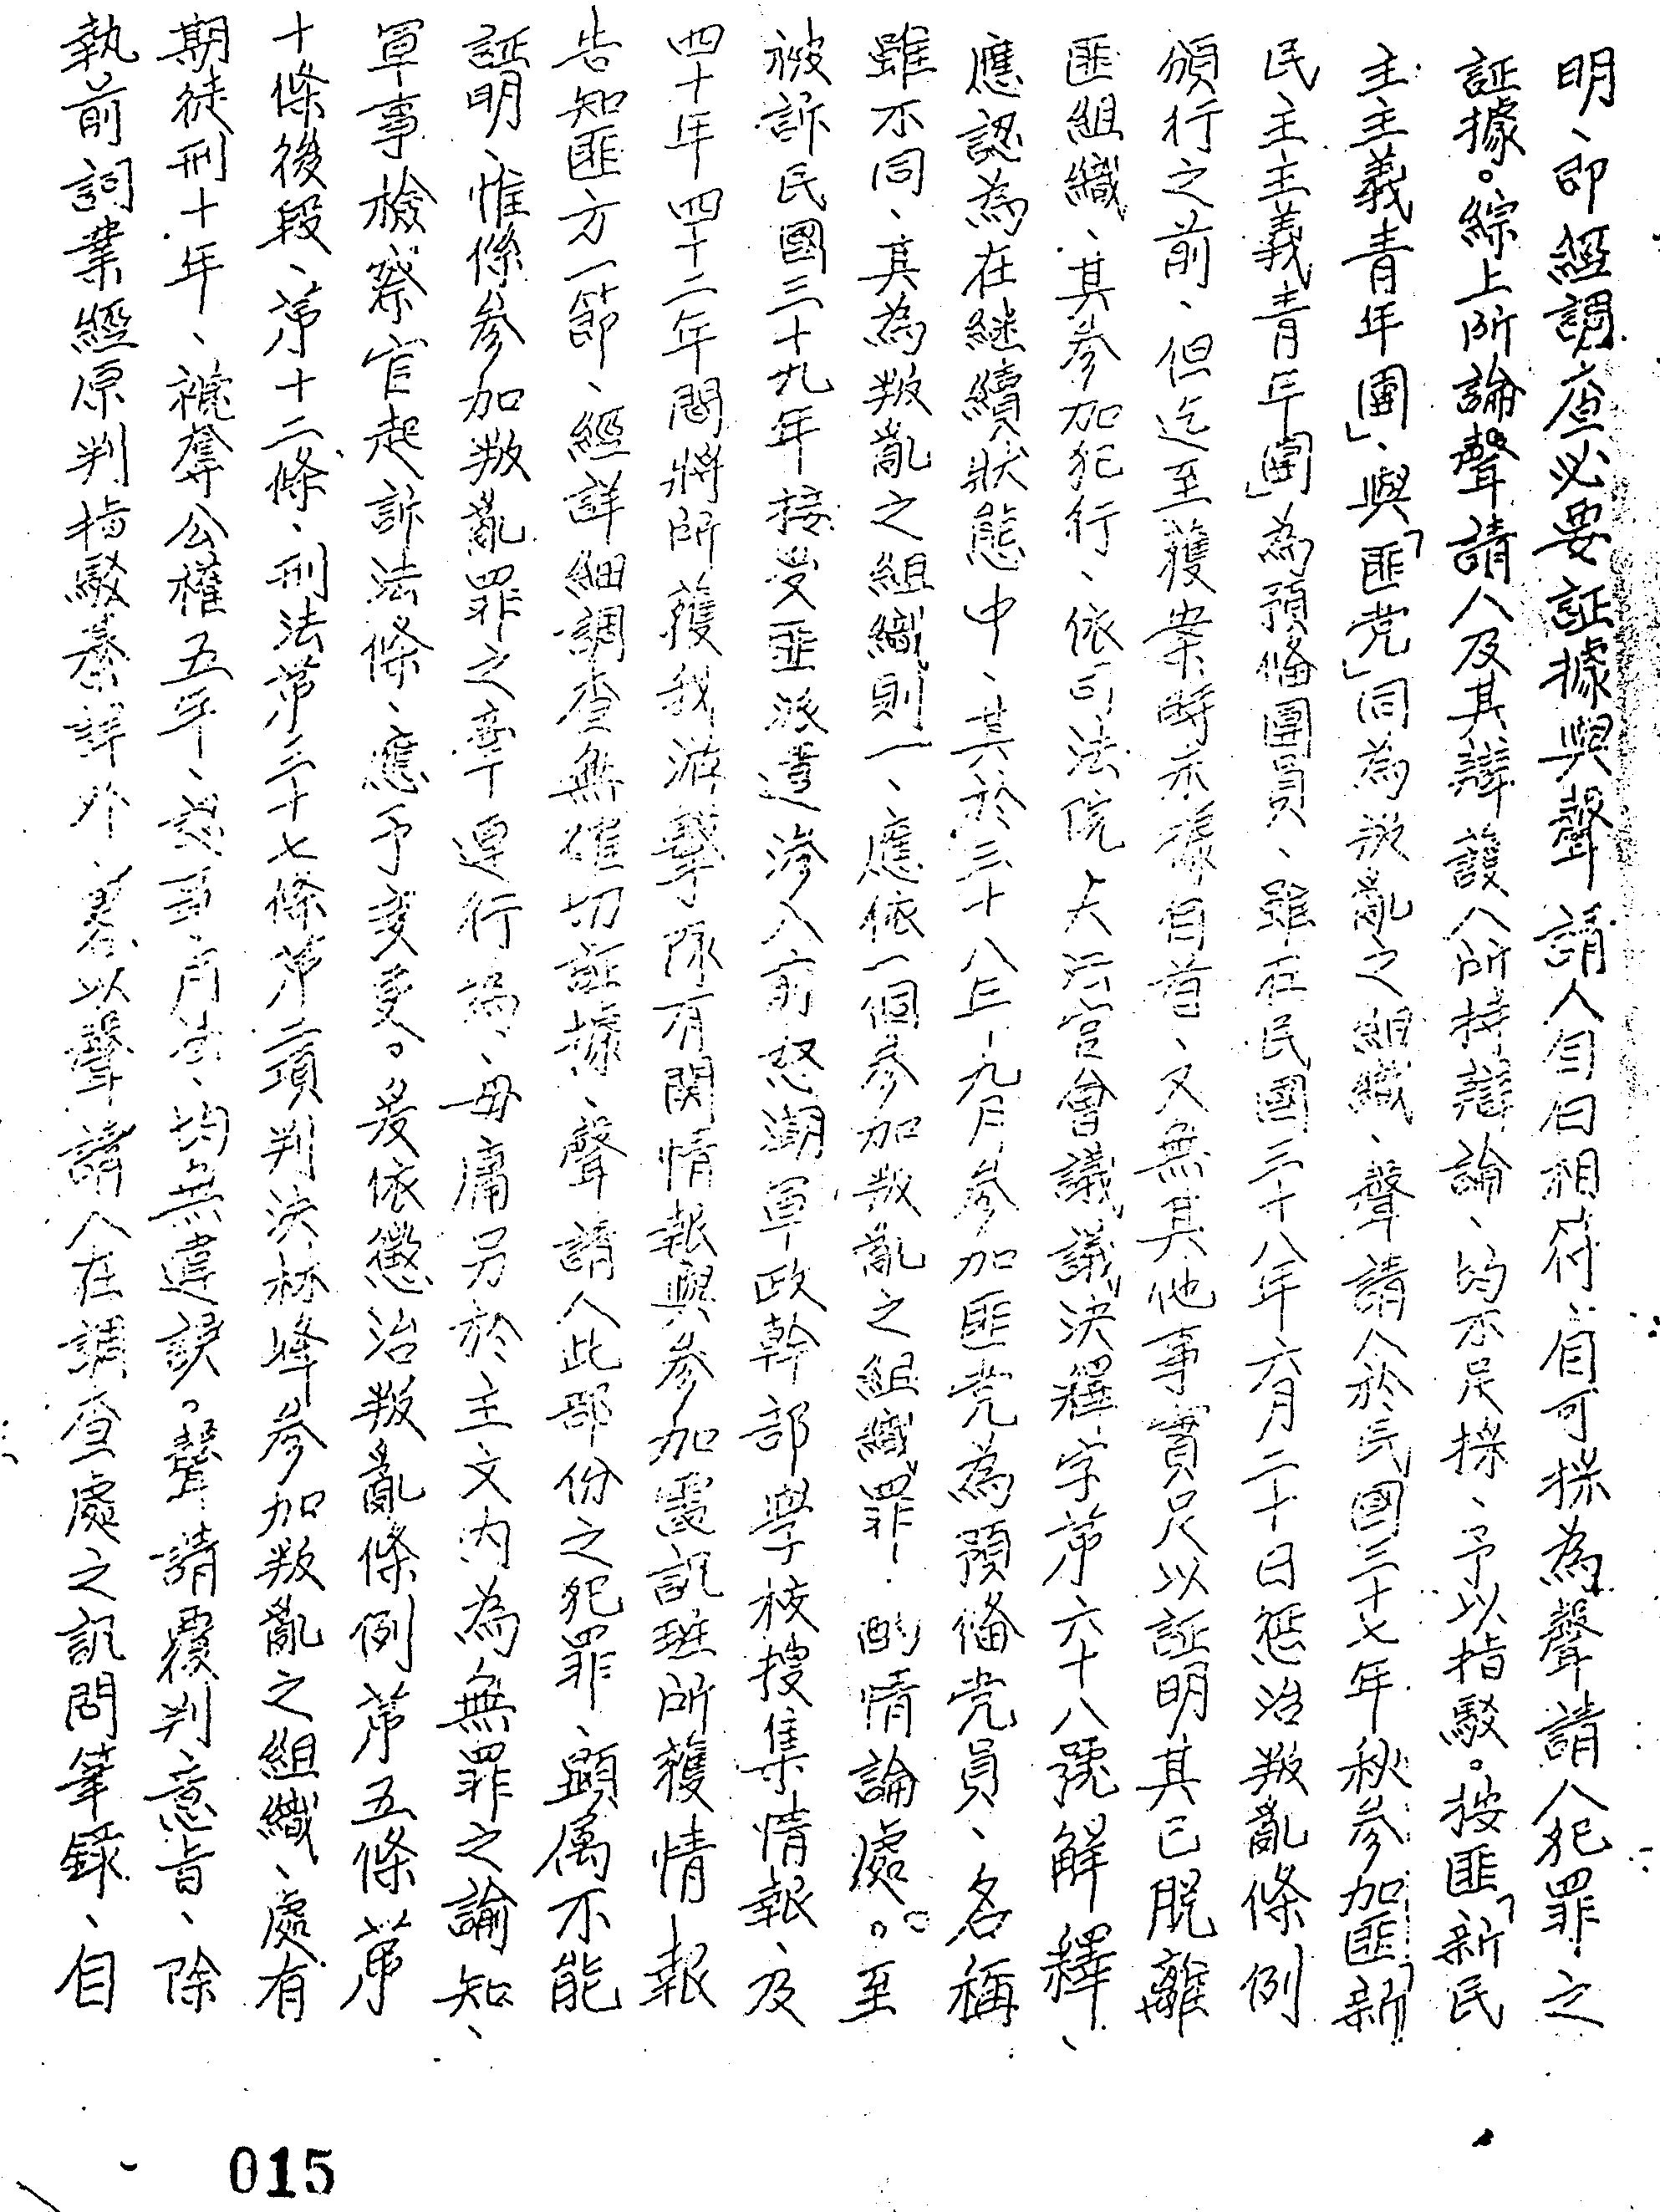 明、即經調查必要証據與聲請人自白相符、自可採為聲請人犯罪之
証據。綜上所論聲請人及其辯護人所持辯論、均不足採、予以指駁。按匪「新民
主主義青年團」、與「匪党」同為叛亂之組織、聲請人於民國三十七年秋參加匪「新
民主主義青年團」為預備團員、雖在民國三十八年六月二十日懲治叛亂條例
頒行之前、但迄至獲案時未據自首、又無其他事實足以証明其已脫離
匪組織、其參加犯行、依司法院大法官會議議決釋字第六十八號解釋、
應認為在繼續狀態中、其於三十八年九月參加匪党為預備党員、名稱
雖不同、其為叛亂之組織則一、應依一個參加叛亂之組織罪、酌情論處。至
被訴民國三十九年接受匪派遣滲入前怒潮軍政幹部學校搜集情報、及
四十年四十二年間將所獲我游擊隊有関情報與參加震訊班所獲情報
告知匪方一節、經詳細調查無確切証據、聲請人此部份之犯罪、顯属不能
証明、惟係參加叛亂罪之牽連行為、毋庸另於主文内為無罪之諭知、
軍事檢察官起訴法條、應予变更。爰依懲治叛亂條例第五條第
十條後段、第十二條、刑法第三十七條第二項判決林峰參加叛亂之組織、處有
期徒刑十年、褫奪公權五年、認事用法、均無違誤。聲請覆判意旨、除
執前詞業經原判指駁綦詳外、以聲請人在調查處之訊問筆錄、自
015